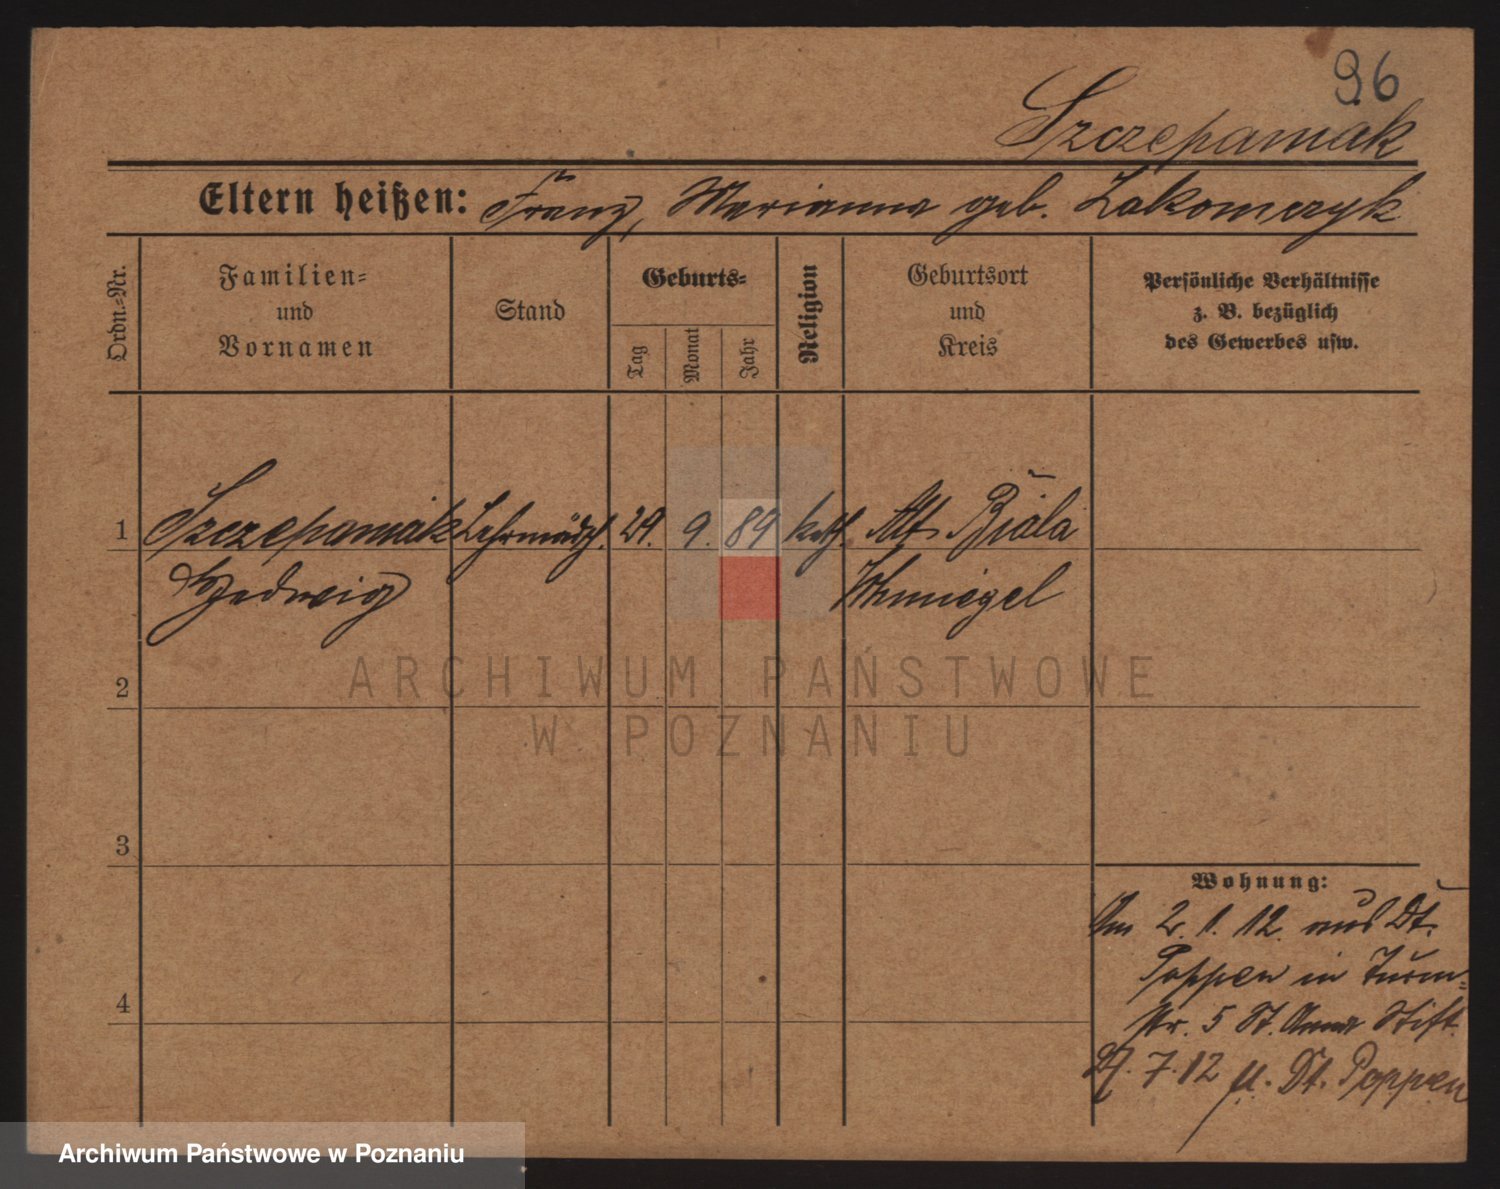 96
Szczepaniak
Eltern heißen: Franz, Marianna geb. Zakomczyk
Ordn.-Nr.
Familien-
und
Vornamen
Stand
Geburts-
Tag
Monat
Jahr
Religion
Geburtsort
und
Kreis
Persönliche Verhältnisse
z. B. bezüglich
des Gewerbes usw.
1 Szczepaniak Lehrmädch. 29. 9. 89 kath. Alt Biala
Hedwig Schmiegel
2
3
4
Wohnung:
Am 2. 1. 12. aus Dt.
Poppen in Turm-
Str. 5 St. Anna Stift.
27. 7. 12 n. Dt. Poppen
ARCHIWUM PAŃSTWOWE
W POZNANIU
Archiwum Państwowe w Poznaniu